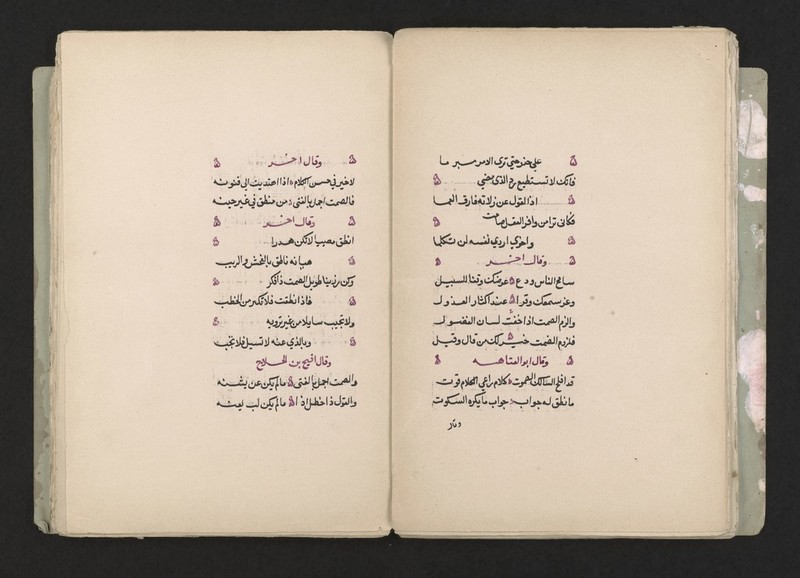 على حذر حتى ترى الامر مبر ما
فانك لا تستطيع رد الذي مضى
اذا القول عن زلاته فارق الفما
فكائن ترا من وافر العقل صامت
واخرى اردي نفسه لن تكلما
وقال اخر
سامح الناس ودع عرضك وقفا للسبيل
وعز سمعك وقرا عند اكثار العذول
والزم الصمت اذا خفت لسان الفضول
فلزوم الصمت خير لك من قال وقيل
وقال ابو العتاهيه
قد افلح السالك الصموت كلام راعي الكلام قوت
ما نطق له جواب جواب ما يكره السكوت
وقال اخر
لا خير في حسن الكلام اذا اهتديت الى فنونه
فالصمت اجمل بالفتى من منطق في غير حينه
وقال اخر
انطق مصيبا لا تكن هدرا
عيابه ناطق بالفحش والريب
وكن رزينا طويل الصمت ذا فكر
فاذا نطقت فلا تكثر من الخطب
ولا تجيب سايلا من غير ترويه
وبالذي عنه لا تسيل فلا تجب
وقال بن الجلاح
والصمت اجمل بالفتى ما لم يكن عن يشنه
والقول ذا خطل اذا ما لم يكن لب يعنه